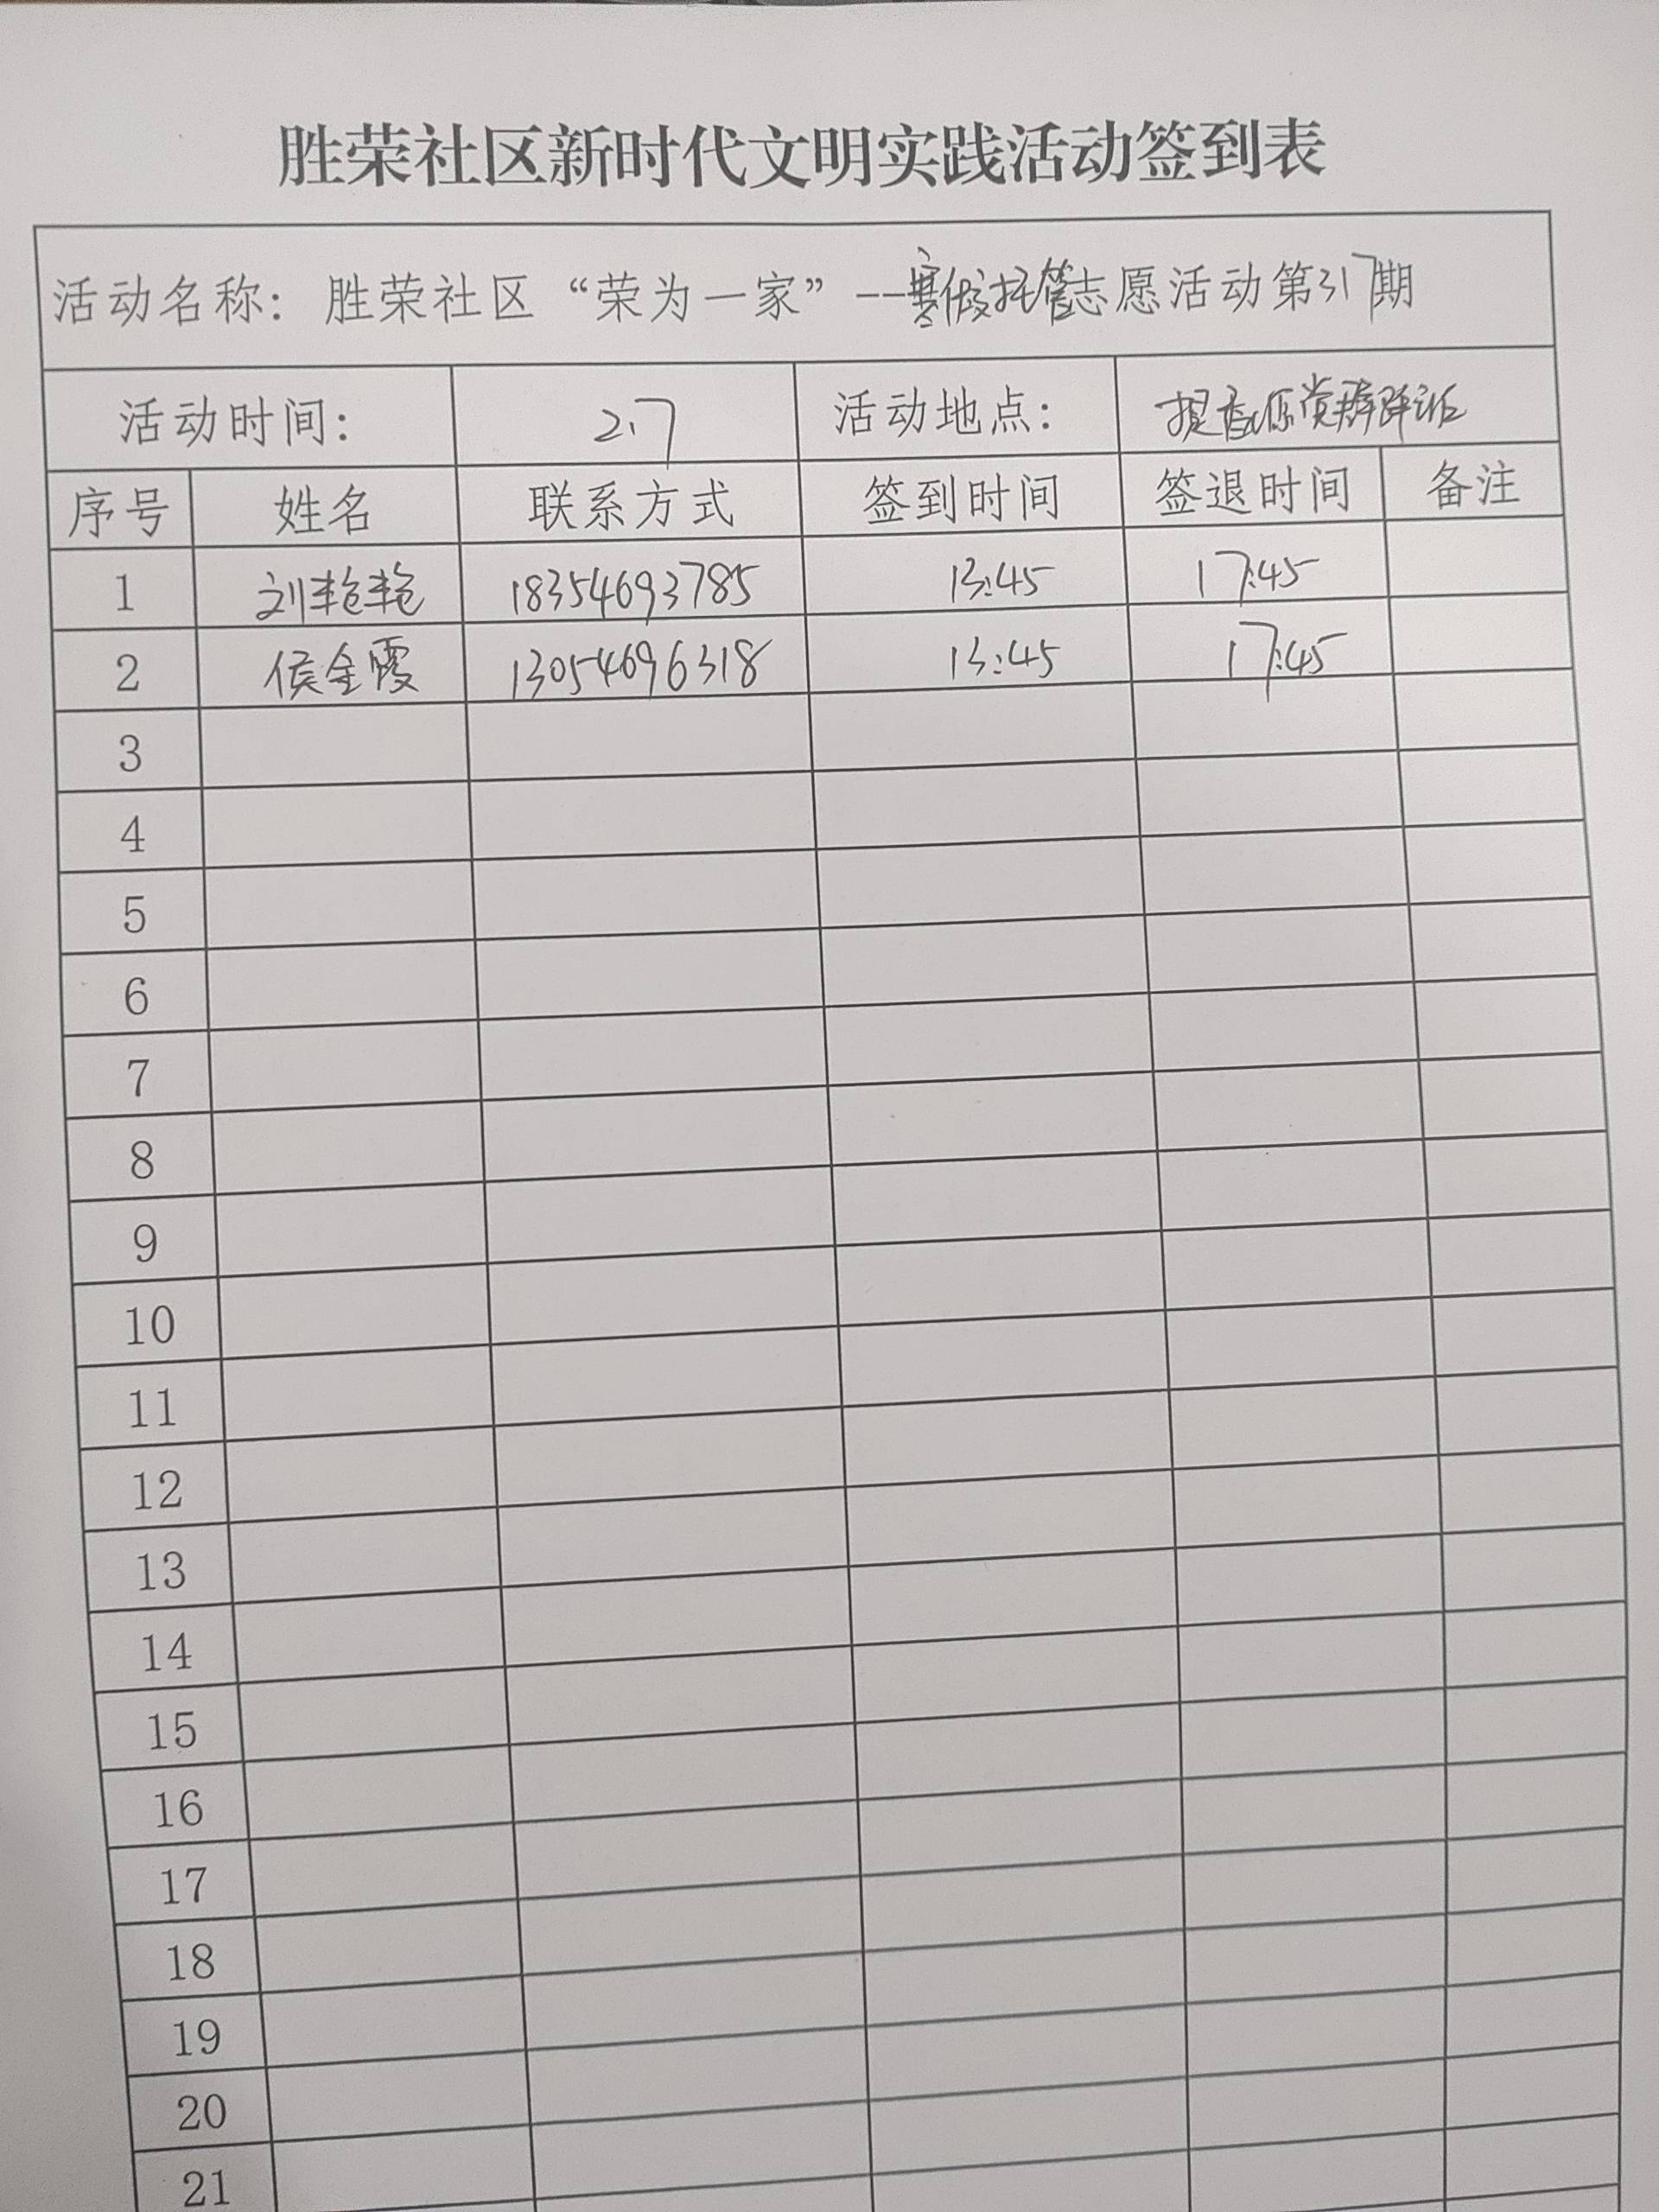 胜荣社区新时代文明实践活动签到表
活动名称：胜荣社区“荣为一家”--寒假托管志愿活动第317期
活动时间： 2.7 活动地点： 提香溪岸党群驿站
序号 姓名 联系方式 签到时间 签退时间 备注
1 刘艳艳 18354693785 13:45 17:45
2 侯金霞 13054696318 13:45 17:45
3
4
5
6
7
8
9
10
11
12
13
14
15
16
17
18
19
20
21